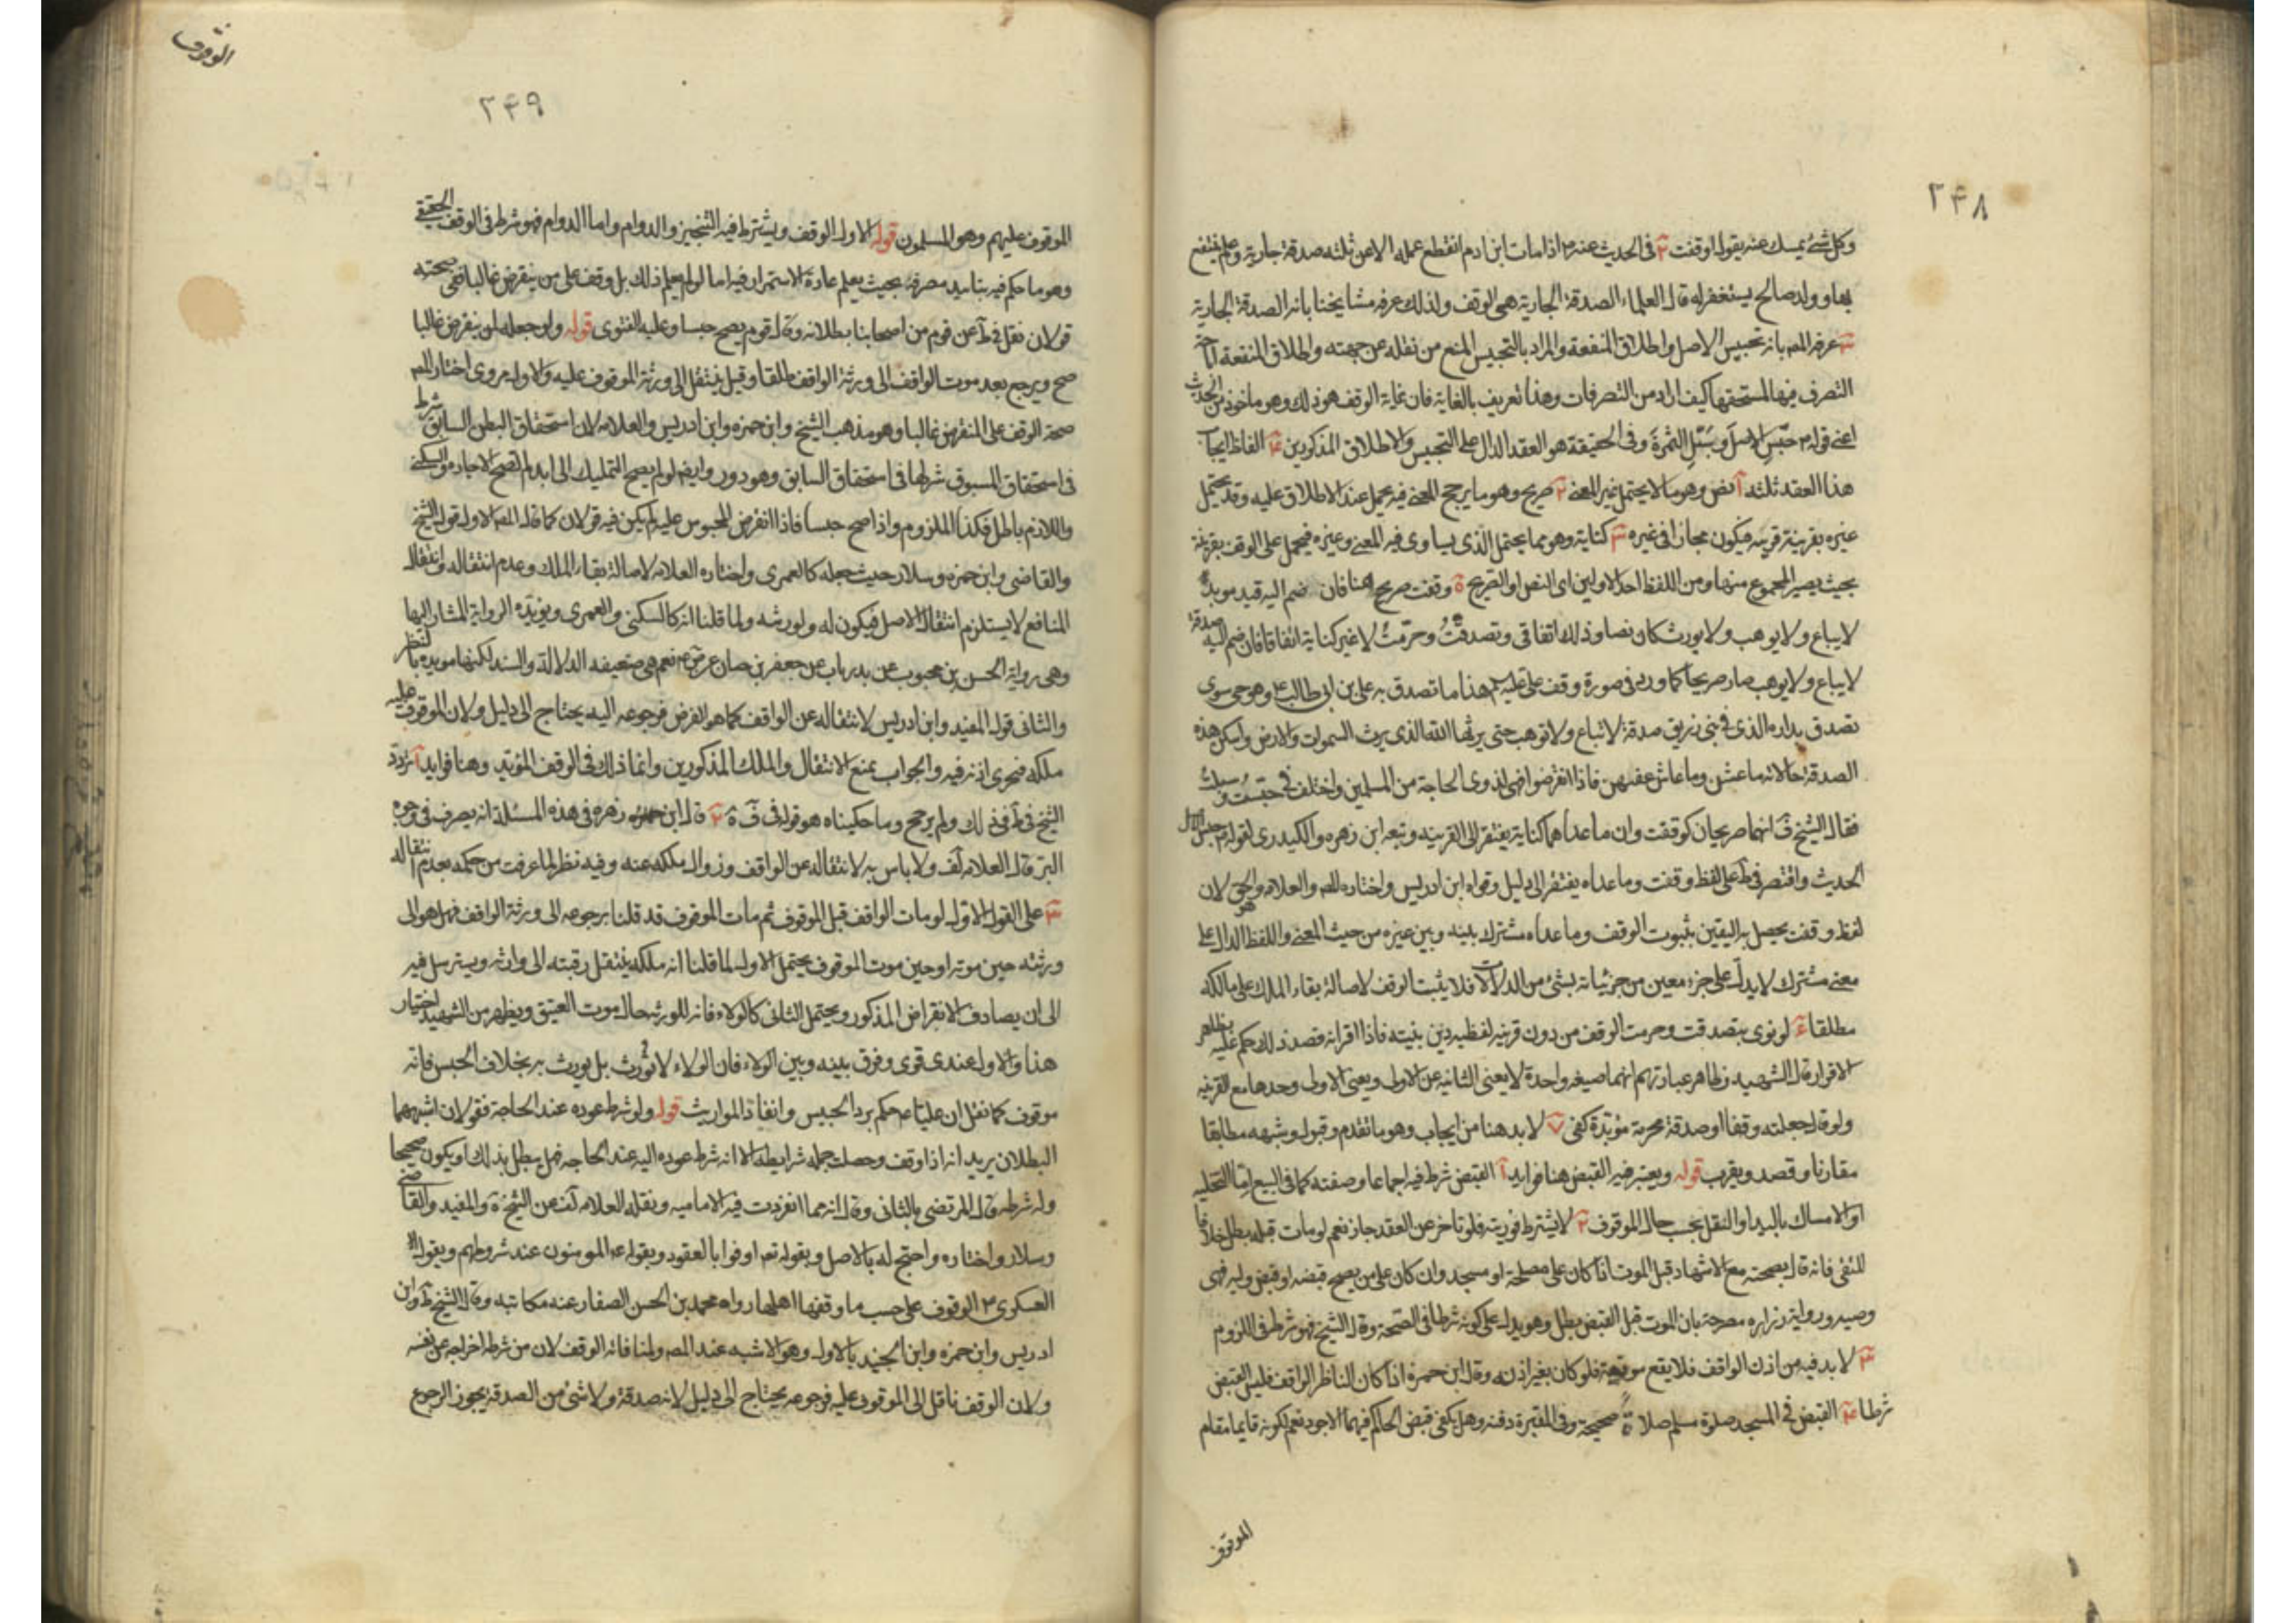 ٢٤٨
وكل شئ يمسك عنه يقول اوقفت ٢ في الحديث عنه م اذا مات ابن ادم انقطع عمله الا عن ثلثه صدقة جارية وعلم ينتفع
بها وولد صالح يستغفر له قال العلماء الصدقة الجارية هي الوقف ولذلك عرفه مشايخنا بانه الصدقة الجارية
٣ عرفه المص بانه تحبيس الاصل واطلاق المنفعة والمراد بالتحبيس المنع من نقله عن جهته واطلاق المنفعة اباحة
التصرف فيها لمستحقها كيف اراد من التصرفات وهذا تعريف بالغاية فان غاية الوقف هو ذلك وهو ماخوذ من الحديث
اعني قوله م حبّس الاصل وسبّل الثمرة وفي الحقيقة هو العقد الدال على التحبيس والاطلاق المذكورين ٤ الفاظ ايجاب
هذا العقد ثلثه آ نص وهو ما لا يحتمل غير المعنى ٢ صريح وهو ما يرجح المعنى فيه يحمل عند الاطلاق عليه وقد يحتمل
غيره بقرينة فيكون مجازا في غيره ٣ كناية وهو ما يحتمل الذي يساوى فيه المعنى وغيره فيحمل على الوقف بقرينة
بحيث يصير المجموع منها ومن اللفظ احد الاولين اى النص او الصريح ة وقفت صريح هنا فان ضم اليه قيد موبد
لا يباع ولا يوهب ولا يورث كان نصا وذلك اتفاقي وتصدقتُ وحرّمتُ لا غير كناية اتفاقا فان ضم اليه صدقة
لا يباع ولا يوهب صار صريحا كما ورد في صورة وقف علي عليه لم هذا ما تصدق به علي بن ابي طالب ع وهو حي سوى
تصدق بداره الذي في بني زريق صدقة لا تباع ولا توهب حتى يرثها الله الذي يرث السموات والارض واسكن هذه
الصدقة خالاته ما عشن وما عاش عقبهن فاذا انقرضوا فهي لذوى الحاجة من المسلمين واختلف في حبّست وسبلت
فقال الشيخ ف انهما صريحان كوقفت وان ما عداهما كناية يفتقر الى القرينه وتبعه ابن زهره والكيدرى لقوله م حبس الاصل
الحديث واقتصر في ط على لفظ وقفت وما عداه يفتقر الى دليل وقواه ابن ادريس واختاره المص والعلامه وهو الحق لان
لفظ وقفت يحصل به اليقين بثبوت الوقف وما عداه مشترك بينه وبين غيره من حيث المعنى واللفظ الدال على
معنى مشترك لا يدل على جزء معين من جزئياته بشئ من الدلالات فلا يثبت الوقف لاصالة بقاء الملك على مالكه
مطلقا ٤ لو نوى بتصدقت وحرمت الوقف من دون قرينه لفظيه دين بنيته فاذا اقر انه قصد ذلك حكم عليه بظاهر
الاقرار قال الشهيد وظاهر عبارتهم انهما صيغه واحدة لا يغني الثانيه عن الاولى ويغني الاولى وحدها مع القرينه
ولو قال جعلته وقفا او صدقة محرمة مؤبّدة كفى ٧ لا بد هنا من ايجاب وهو ما تقدم وقبول وشبهه مطابقا
مقارنا وقصد وبقرب قوله ويعتبر فيه القبض هنا فوايد آ القبض شرط فيه اجماعا وصفته كما في البيع امّا التخليه
او الامساك باليد او النقل بحسب حال الموقوف ٢ لا يشترط فوريته فلو تاخر عن العقد جاز نعم لو مات قبله بطل خلافا
للتقي فانه قال بصحته مع الاشهاد قبل الموت اذا كان على مصلحة او مسجد وان كان على من يصح قبضه او قبض وليه فهي
وصيه ورواية زراره مصرحة بان الموت قبل القبض يبطل وهو يدل على كونه شرطا في الصحة وقال الشيخ فهو شرط في اللزوم
٣ لا بد فيه من اذن الواقف فلا يقع موقعه فلو كان بغير اذنه وقال ابن حمزة اذا كان الناظر الواقف فليس القبض
شرطا ٤ القبض في المسجد صلوة مسلم صلاة صحيحة وفي المقبرة دفنه وهل يكفي قبض الحاكم فيهما الاجود نعم لكونه قايما مقام
الموقوف
الوقوف
٢٤٩
الموقوف عليهم وهو المسلمون قوله الاول الوقف ويشترط فيه التنجيز والدوام واما الدوام فهو شرط في الوقف الحقيقي
وهو ما حكم فيه بتابيد مصرفه بحيث يعلم عادة الاستمرار فيه اما لو لم يعلم ذلك بل وقف على من ينقرض غالبا ففي صحته
قولان نقل في ط عن قوم من اصحابنا بطلانه وقال قوم يصح حبسا وعليه الفتوى قوله ولو جعله لمن ينقرض غالبا
صح ويرجع بعد موت الواقف الى ورثة الواقف طلقا وقيل ينتقل الى ورثة الموقوف عليه والاول مروى اختار المص
صحة الوقف على المنقرض غالبا وهو مذهب الشيخ وابن حمزه وابن ادريس والعلامه لان استحقاق البطن السابق شرط
في استحقاق المسبوق شرطها في استحقاق السابق وهو دور وايضا لو لم يصح التمليك الى ابد لم تصح الاجاره والسكنى
واللازم باطل فكذا الملزوم واذا صح حبسا فاذا انقرض المحبوس عليه لم يكن فيه قولان كما قال المص الاول قول الشيخ
والقاضي وابن حمزه وسلار حيث جعله كالعمرى واختاره العلامه لاصالة بقاء الملك وعدم انتقاله وانتقال
المنافع لا يستلزم انتقال الاصل فيكون له ولورثه ولما قلنا انه كالسكنى والعمرى ويؤيده الرواية المشار اليها
وهي رواية الحسن بن محبوب عن بدر باب عن جعفر بن حنان عن ص ع نعم هي ضعيفه الدلالة والسند لكنها مويده بالنظر
والثاني قول المفيد وابن ادريس لانتقاله عن الواقف كما هو الفرض فرجوعه اليه يحتاج الى دليل ولان الموقوف عليه
ملكه فيجرى ارثه فيه والجواب بمنع الانتقال والملك المذكورين وانما ذلك في الوقف المؤبّد وهنا فوايد آ تردد
الشيخ في ط في ذلك ولم يرجح وما حكيناه هو قوله في ف ة ٢ قال ابن زهره في هذه المسئلة انه يصرف في وجوه
البر قال العلامه لف ولا باس به لانتقاله عن الواقف وزوال ملكه عنه وفيه نظر لما عرفت من حكمه بعدم انتقاله
٣ على القول الاول لو مات الواقف قبل الموقوف ثم مات الموقوف قد قلنا برجوعه الى ورثة الواقف فهل هو الى
ورثته حين موته او حين موت الموقوف يحتمل الاول لما قلنا انه ملكه ينتقل رقبته الى وارثه ويسترسل فيه
الى ان يصادف الانقراض المذكور ويحتمل الثاني كالولاء فانه للورثه حال موت العتيق ويظهر من الشهيد اختيار
هذا والاول عندى قوى وفرق بينه وبين الولاء فان الولاء لا يورث بل يورث به بخلاف الحبس فانه
موقوف كما نقل ان عليا ع حكم برد الحبيس وانفاذ المواريث قوله ولو شرط عوده عند الحاجة فقولان اشبههما
البطلان يريد انه اذا وقف وحصلت جمله شرايطه الا انه شرط عوده اليه عند الحاجه فهل يبطل بذلك او يكون صحيحا
وله شرطه قال المرتضى بالثاني وقال انه مما انفردت فيه الاماميه ونقله العلامه لف عن الشيخ ة والمفيد والقاضي
وسلار واختاره واحتج له بالاصل وبقوله تعه اوفوا بالعقود وبقوله ع المومنون عند شروطهم وبقول
العسكرى م الوقوف على حسب ما وقفها اهلها رواه محمد بن الحسن الصفار عنه مكاتبه وقال الشيخ ط وابن
ادريس وابن حمزه وابن الجنيد بالاول وهو الاشبه عند المص ولمنافاته الوقف لان من شرطه اخراجه عن نفسه
ولان الوقف ناقل الى الموقوف عليه فرجوعه يحتاج الى دليل لانه صدقة ولا شئ من الصدقة يجوز الرجوع